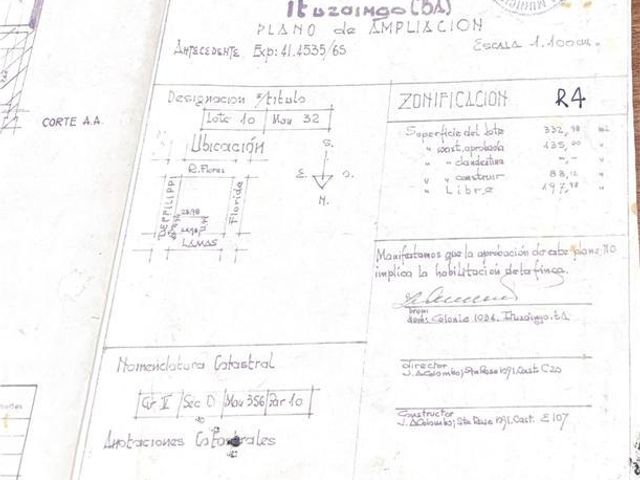 Ituzaingo (BA)
PLANO de AMPLIACION
ANTECEDENTE Exp: 41.4535/65
ESCALA 1.100 m.
CORTE A.A.
Designacion s/titulo
Lote 10 Man 32
Ubicación
R. Flores
DEFILIPPI
Florida
LAMAS
S.
E. O.
N.
ZONIFICACION R4
Superficie del lote 332,98 m2
" const. aprobada 135,00 "
" " clandestina -,- "
" " construir 88,12 "
" Libre 197,98 "
Manifestamos que la aprobación de este plano NO
implica la habilitacion de la finca.
prop:
doms. Colonia 1034. Ituzaingo. BA
director
J. D. Colombo; Sta Rosa 1091. Cast. C20
Constructor
J. D. Colombo; Sta Rosa 1091. Cast. E 107
Nomenclatura Catastral
Cir IV Sec D Man 356 Par 10
Anotaciones Catastrales